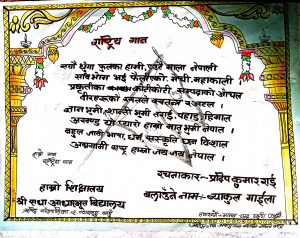 राष्ट्रिय गान
सयौं थुँगा फूलका हामी, एउटै माला नेपाली
सार्वभौम भई फैलिएका मेची महाकाली
प्रकृतीका कोटीकोटी सम्पदाको आँचल
वीरहरूका रगतले स्वतन्त्र र अटल ।
ज्ञान भूमी शान्ती भूमी तराई, पहाड हिमाल
अखण्ड यो प्यारो हाम्रो मातृ भूमी नेपाल ।
बहुल जाती भाषा, धर्म, संस्कृति छन् विशाल
अग्रगामी राष्ट्र हाम्रो जय जय नेपाल ।
हाम्रो गान
राष्ट्रिय गान
रचनाकार - प्रदिप कुमार राई
हाम्रो शिक्षालय
बनाउँने नाम:- ब्याकुल माईला
श्री राधा आधारभूत विद्यालय